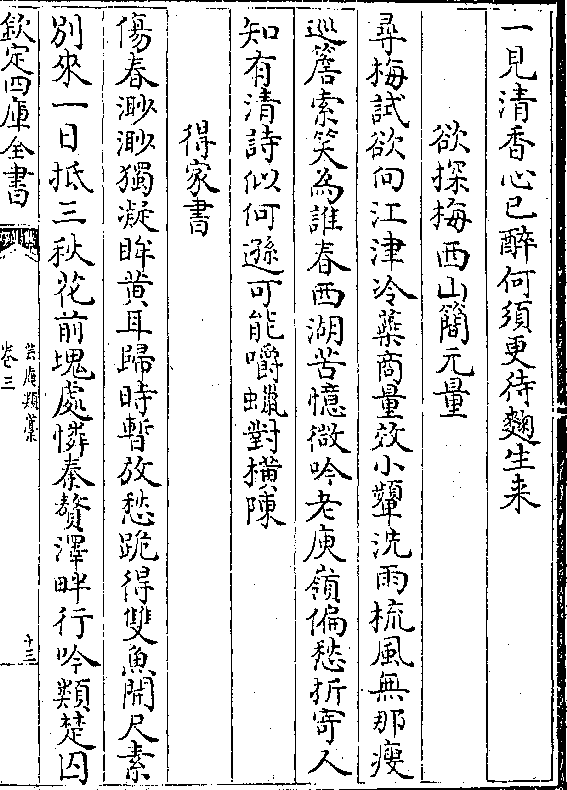 一見清香心已醉何須更待麴生来
欲探梅西山簡元量
尋梅試欲向江津冷蘂商量效小顰洗雨梳風無那瘦
巡簷索笑為誰春西湖苦憶微吟老庾嶺偏愁折寄人
知有清詩似何遜可能嚼蠟對橫陳
得家書
傷春渺渺獨凝眸黄耳歸時暫放愁跪得雙魚開尺素
别來一日抵三秋花前塊處憐秦贅澤畔行吟類楚囚
欽定四庫全書
芸庵類藁
卷三
十三